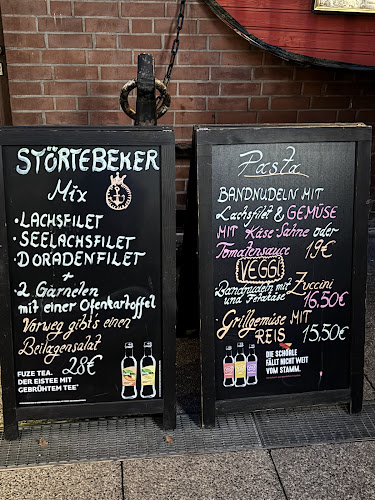 STÖRTEBEKER
Mix
• LACHSFILET
• SEELACHSFILET
• DORADENFILET
+
2 Garnelen
mit einer Ofenkartoffel
Vorweg gibts einen
Beilagensalat
28€
FUZE TEA.
DER EISTEE MIT
GEBRÜHTEM TEE
Pasta
BANDNUDELN MIT
Lachsfilet & GEMÜSE
MIT Käse-Sahne oder
Tomatensauce 19€
VEGGI
Bandnudeln mit Zuccini
und Fetakäse 16,50€
Grillgemüse MIT
REIS 15,50€
DIE SCHORLE
FÄLLT NICHT WEIT
VOM STAMM.